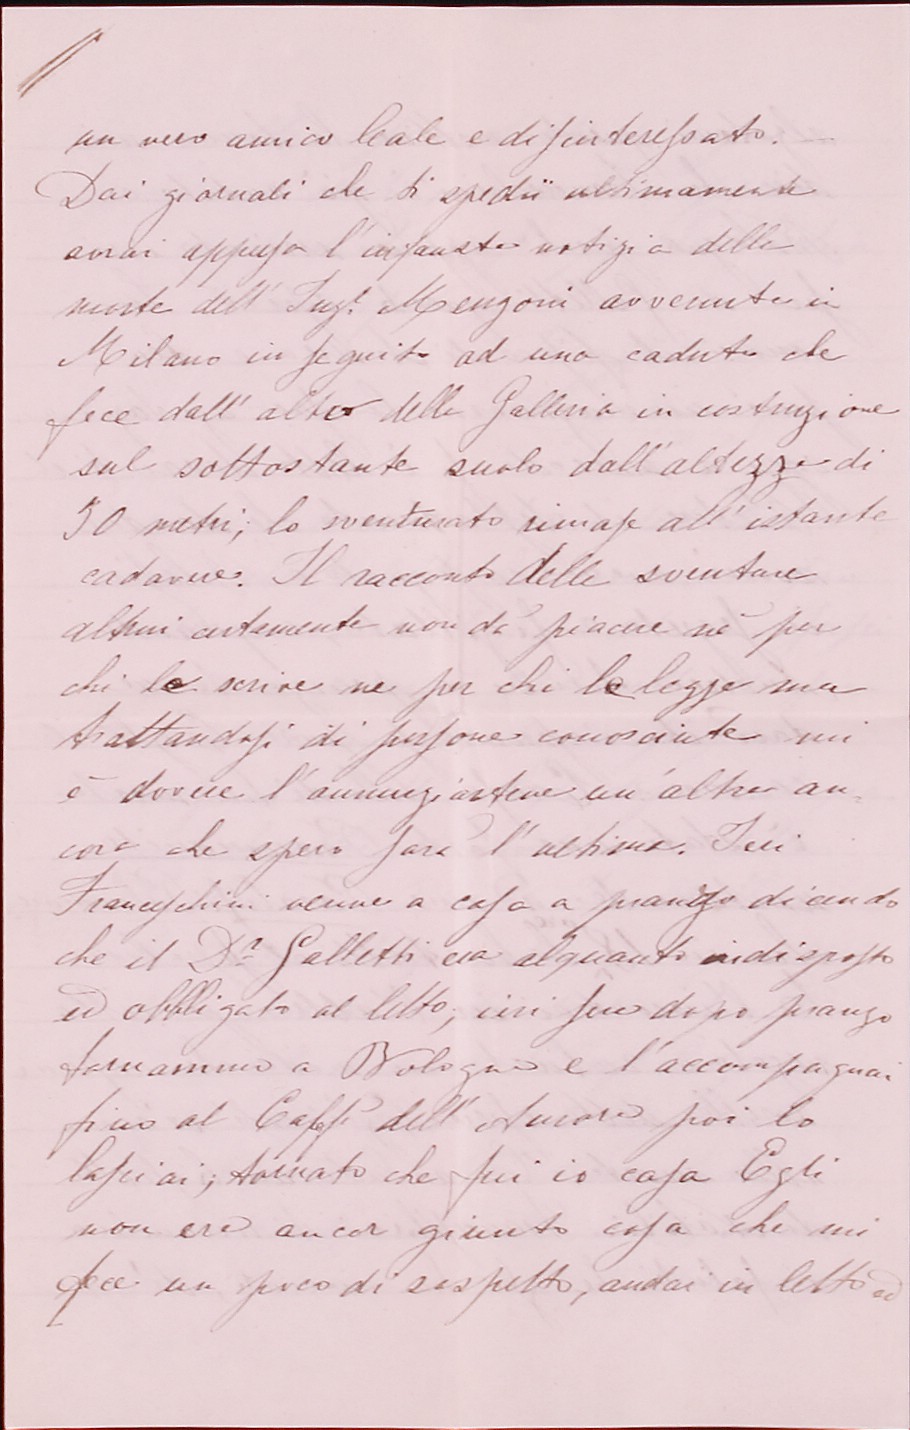 un vero amico leale e disinteressato. —
Dai giornali che ti spedii ultimamente
avrai appreso l'infausta notizia della
morte dell' Ing.e Mengoni avvenuta in
Milano in seguito ad una caduta che
fece dall' alto della Galleria in costruzione
sul sottostante suolo dall' altezza di
50 metri; lo sventurato rimase all' istante
cadavere. Il racconto delle sventure
altrui certamente non dà piacere nè per
chi le scrive ne per chi le legge ma
trattandosi di persone conosciute mi
è dovere l'annunziartene un' altra an-
cora che spero sarà l' ultima. Ieri
Franceschini venne a casa a pranzo dicendo
che il D.r Galletti era alquanto indisposto
ed obbligato al letto; ieri sera dopo pranzo
tornammo a Bologna e l'accompagnai
fino al Caffè dell' Aurora poi lo
lasciai; tornato che fui io casa Egli
non era ancor giunto cosa che mi
fece un poco di sospetto, andai in letto ed